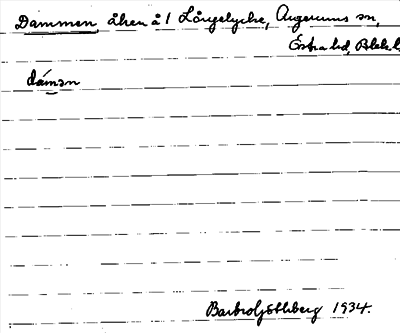 Dammen, åker å 1 Långelycke, Augerums sn,
Östra hd, Blek l
dámən
1934.